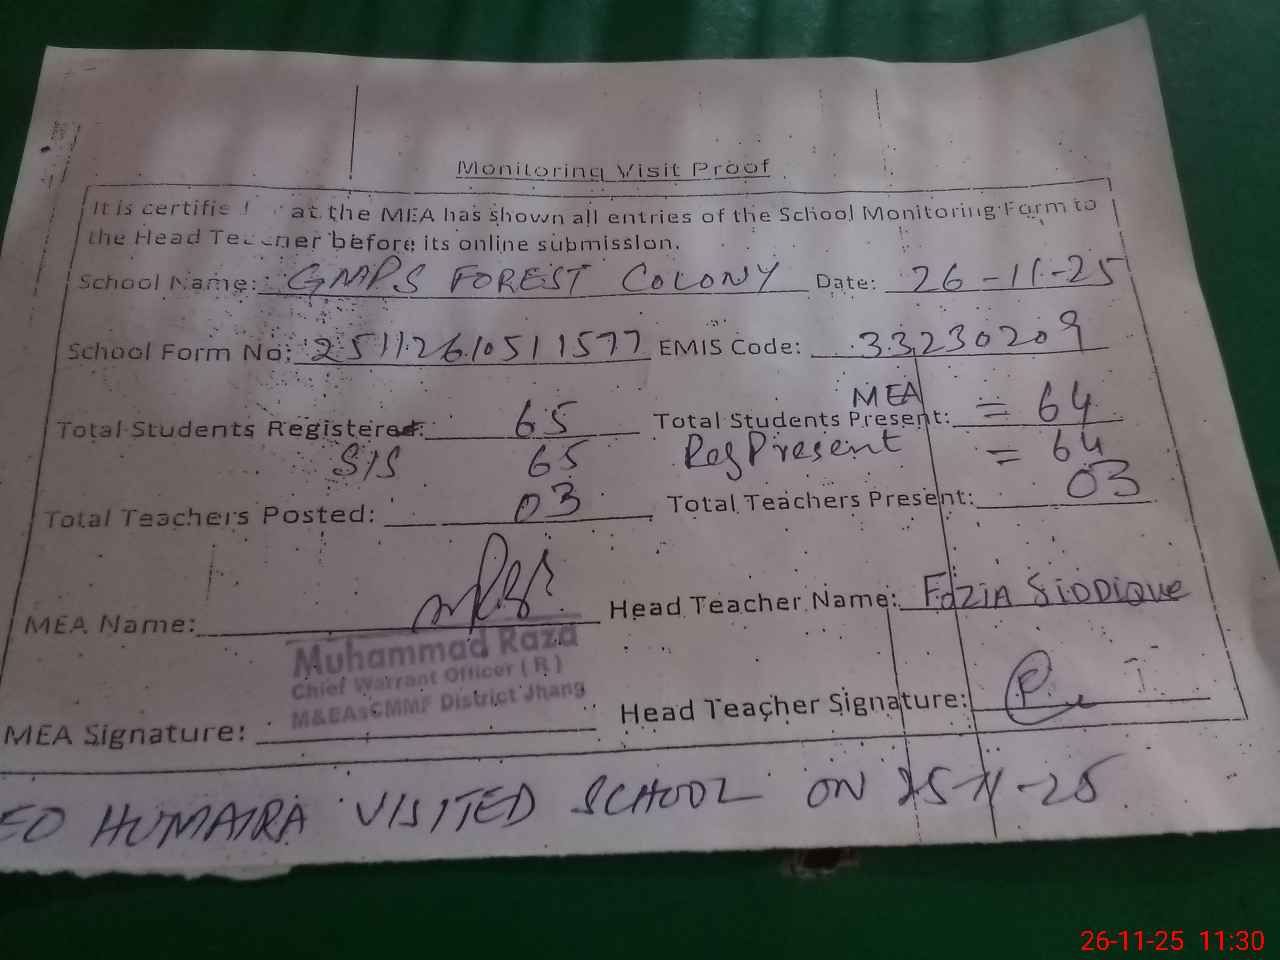 Monitoring Visit Proof
It is certifie at the MEA has shown all entries of the School Monitoring Form to
the Head Teacher before its online submission.
School Name: GMPS FOREST COLONY Date: 26-11-25
School Form No: 25112610511577 EMIS Code: 33230209
MEA
Total Students Registered: 65 Total Students Present: = 64
SIS 65 Reg Present = 64
Total Teachers Posted: 03 Total Teachers Present: 03
MEA Name: Head Teacher Name: Fozia SIDDIQUE
Muhammad Raza
Chief Warrant Officer (R)
M&EAsCMMF District Jhang
MEA Signature: Head Teacher Signature:
EO HUMAIRA VISITED SCHOOL ON 25-11-25
26-11-25 11:30